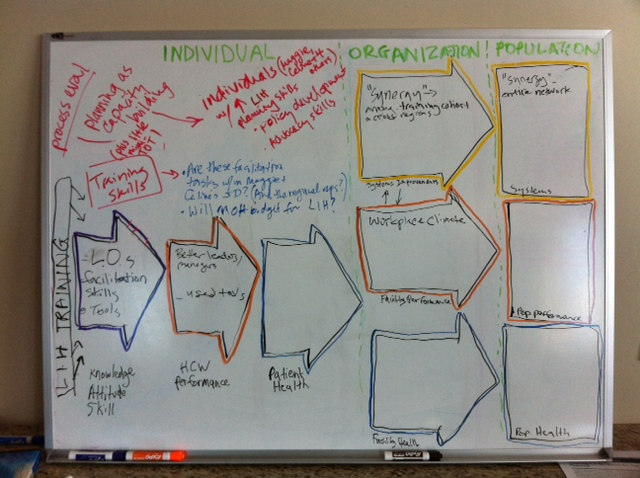 INDIVIDUAL
ORGANIZATION
POPULATION
process eval
Planning as
capacity
building
(plus little
OJT)
individuals (Maggie,
others)
w/ ↑ LIH
planning skills
• Policy development
Advocacy skills
Training
Skills
• Are these facilitation
tasks w/in Maggie +
Celina's JD? (And the regional reps?)
• Will MOH budget for LIH?
LIH TRAINING
- L.O.s
facilitation
skills
Tools
Knowledge
Attitude
Skill
Better leaders/
managers
- used tools
HCW
Performance
Patient
Health
"Synergy" →
among training cohort
across regions
Systems Improvements
Workplace Climate
Facility Performance
Facility Health
"Synergy" -
entire network
Systems
Pop performance
Pop Health
EXPO
EXPO